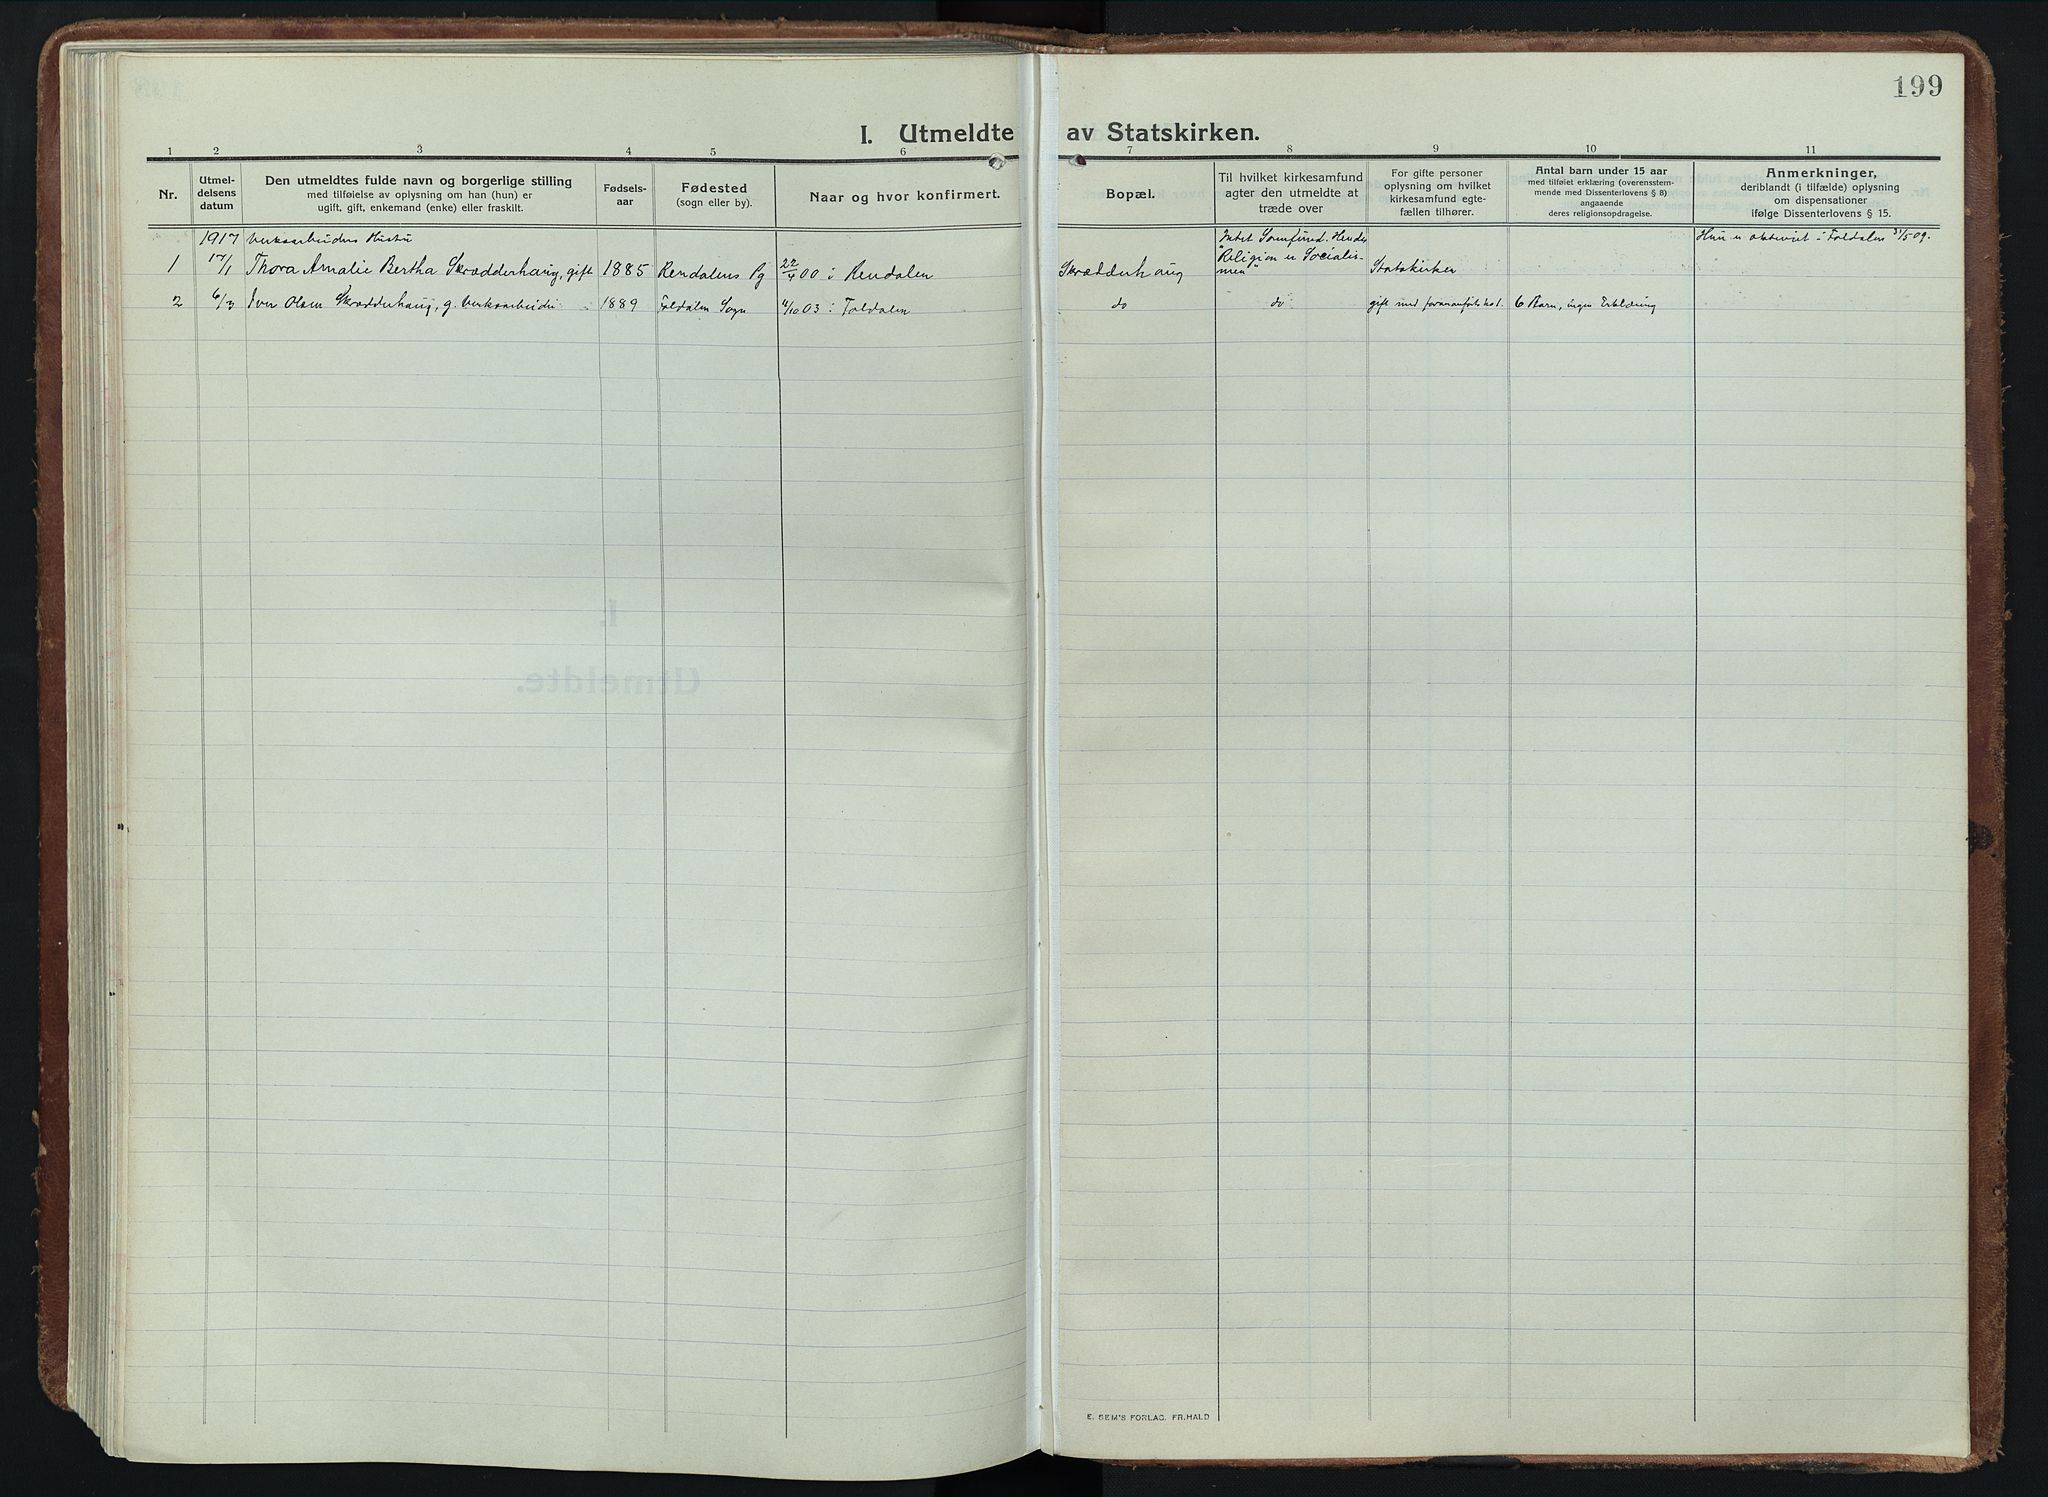 199
I. Utmeldte av Statskirken.
1 2 3 4 5 6 7 8 9 10 11
Nr.
Utmel-
delsens
datum
Den utmeldtes fulde navn og borgerlige stilling
med tilføielse av oplysning om han (hun) er
ugift, gift, enkemand (enke) eller fraskilt.
Fødsels-
aar
Fødested
(sogn eller by).
Naar og hvor konfirmert.
Bopæl.
Til hvilket kirkesamfund
agter den utmeldte at
træde over
For gifte personer
oplysning om hvilket
kirkesamfund egte-
fællen tilhører.
Antal barn under 15 aar
med tilføiet erklæring (overensstem-
mende med Dissenterlovens § 8)
angaaende
deres religionsopdragelse.
Anmerkninger,
deriblandt (i tilfælde) oplysning
om dispensationer
ifølge Dissenterlovens § 15.
1917 Verksarbeiders Hustru
1 17/1 Thora Amalie Bertha Skrædderhaug, gift 1885 Rendalens Pg 22/4 00 i Rendalen Skrædderhaug
Intet Samfund. Hendes
"Religion er Socialis-
men"
Statskirken
Hun er viet i Foldalen 31/5 09.
2 6/3 Iver Olsen Skrædderhaug, g. Verksarbeider 1889 Foldalen Sogn 4/10 03 i Foldalen do do gift med foranførte 6 Barn, ingen Erklæring
E. SEM'S FORLAG, FR.HALD